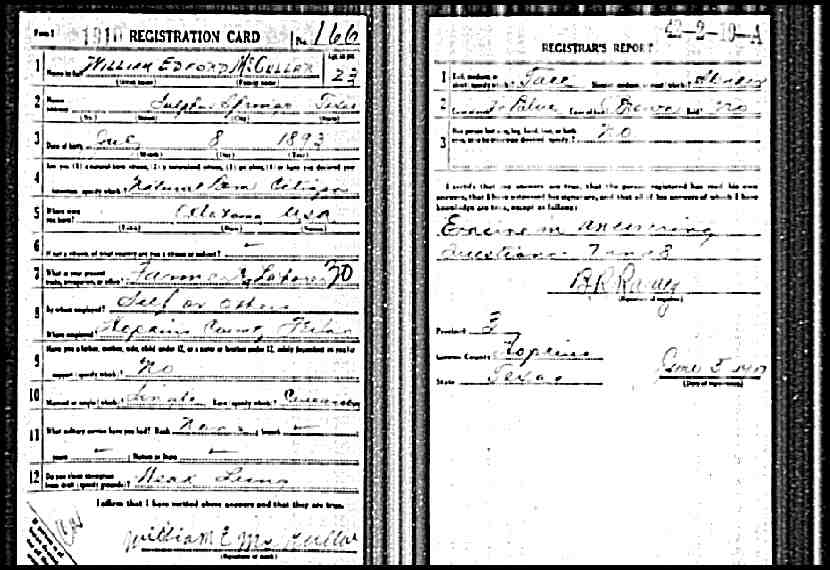 Form 1 1910 REGISTRATION CARD No. 166
1 Name in full William Edford McCuller Age, in yrs. 23
(Given name) (Family name)
2 Home address Sulphur Springs Texas
(No.) (Street) (City) (State)
3 Date of birth July 8 1893
(Month) (Day) (Year)
4 Are you (1) a natural-born citizen, (2) a naturalized citizen, (3) an alien, (4) or have you declared your
intention (specify which)? Natural Born Citizen
5 Where were you born? USA
(Town) (State) (Nation)
6 If not a citizen, of what country are you a citizen or subject?
7 What is your present trade, occupation, or office? Farmer 70
8 By whom employed? Self or Others
Where employed? Hopkins County Texas
9 Have you a father, mother, wife, child under 12, or a sister or brother under 12, solely dependent on you for
support (specify which)? No
10 Married or single (which)? Single Race (specify which)? Caucasian
11 What military service have you had? Rank None branch
years Nation or State
12 Do you claim exemption from draft (specify grounds)? Weak Lungs
I affirm that I have verified above answers and that they are true.
William E McCuller
(Signature or mark)
42-2-10-A
REGISTRAR'S REPORT
1 Tall, medium, or short (specify which)? Tall Slender, medium, or stout (which)? Slender
2 Color of eyes? Blue Color of hair? Brown Bald? No
3 Has person lost arm, leg, hand, foot, or both eyes, or is he otherwise disabled (specify)? No
I certify that my answers are true, that the person registered has read his own
answers, that I have witnessed his signature, and that all of his answers of which I have
knowledge are true, except as follows:
answering
Questions 7 and 8
B.R. Raney
(Signature of registrar)
Precinct 3
County Hopkins
State Texas
June 5 1917
(Date of registration)